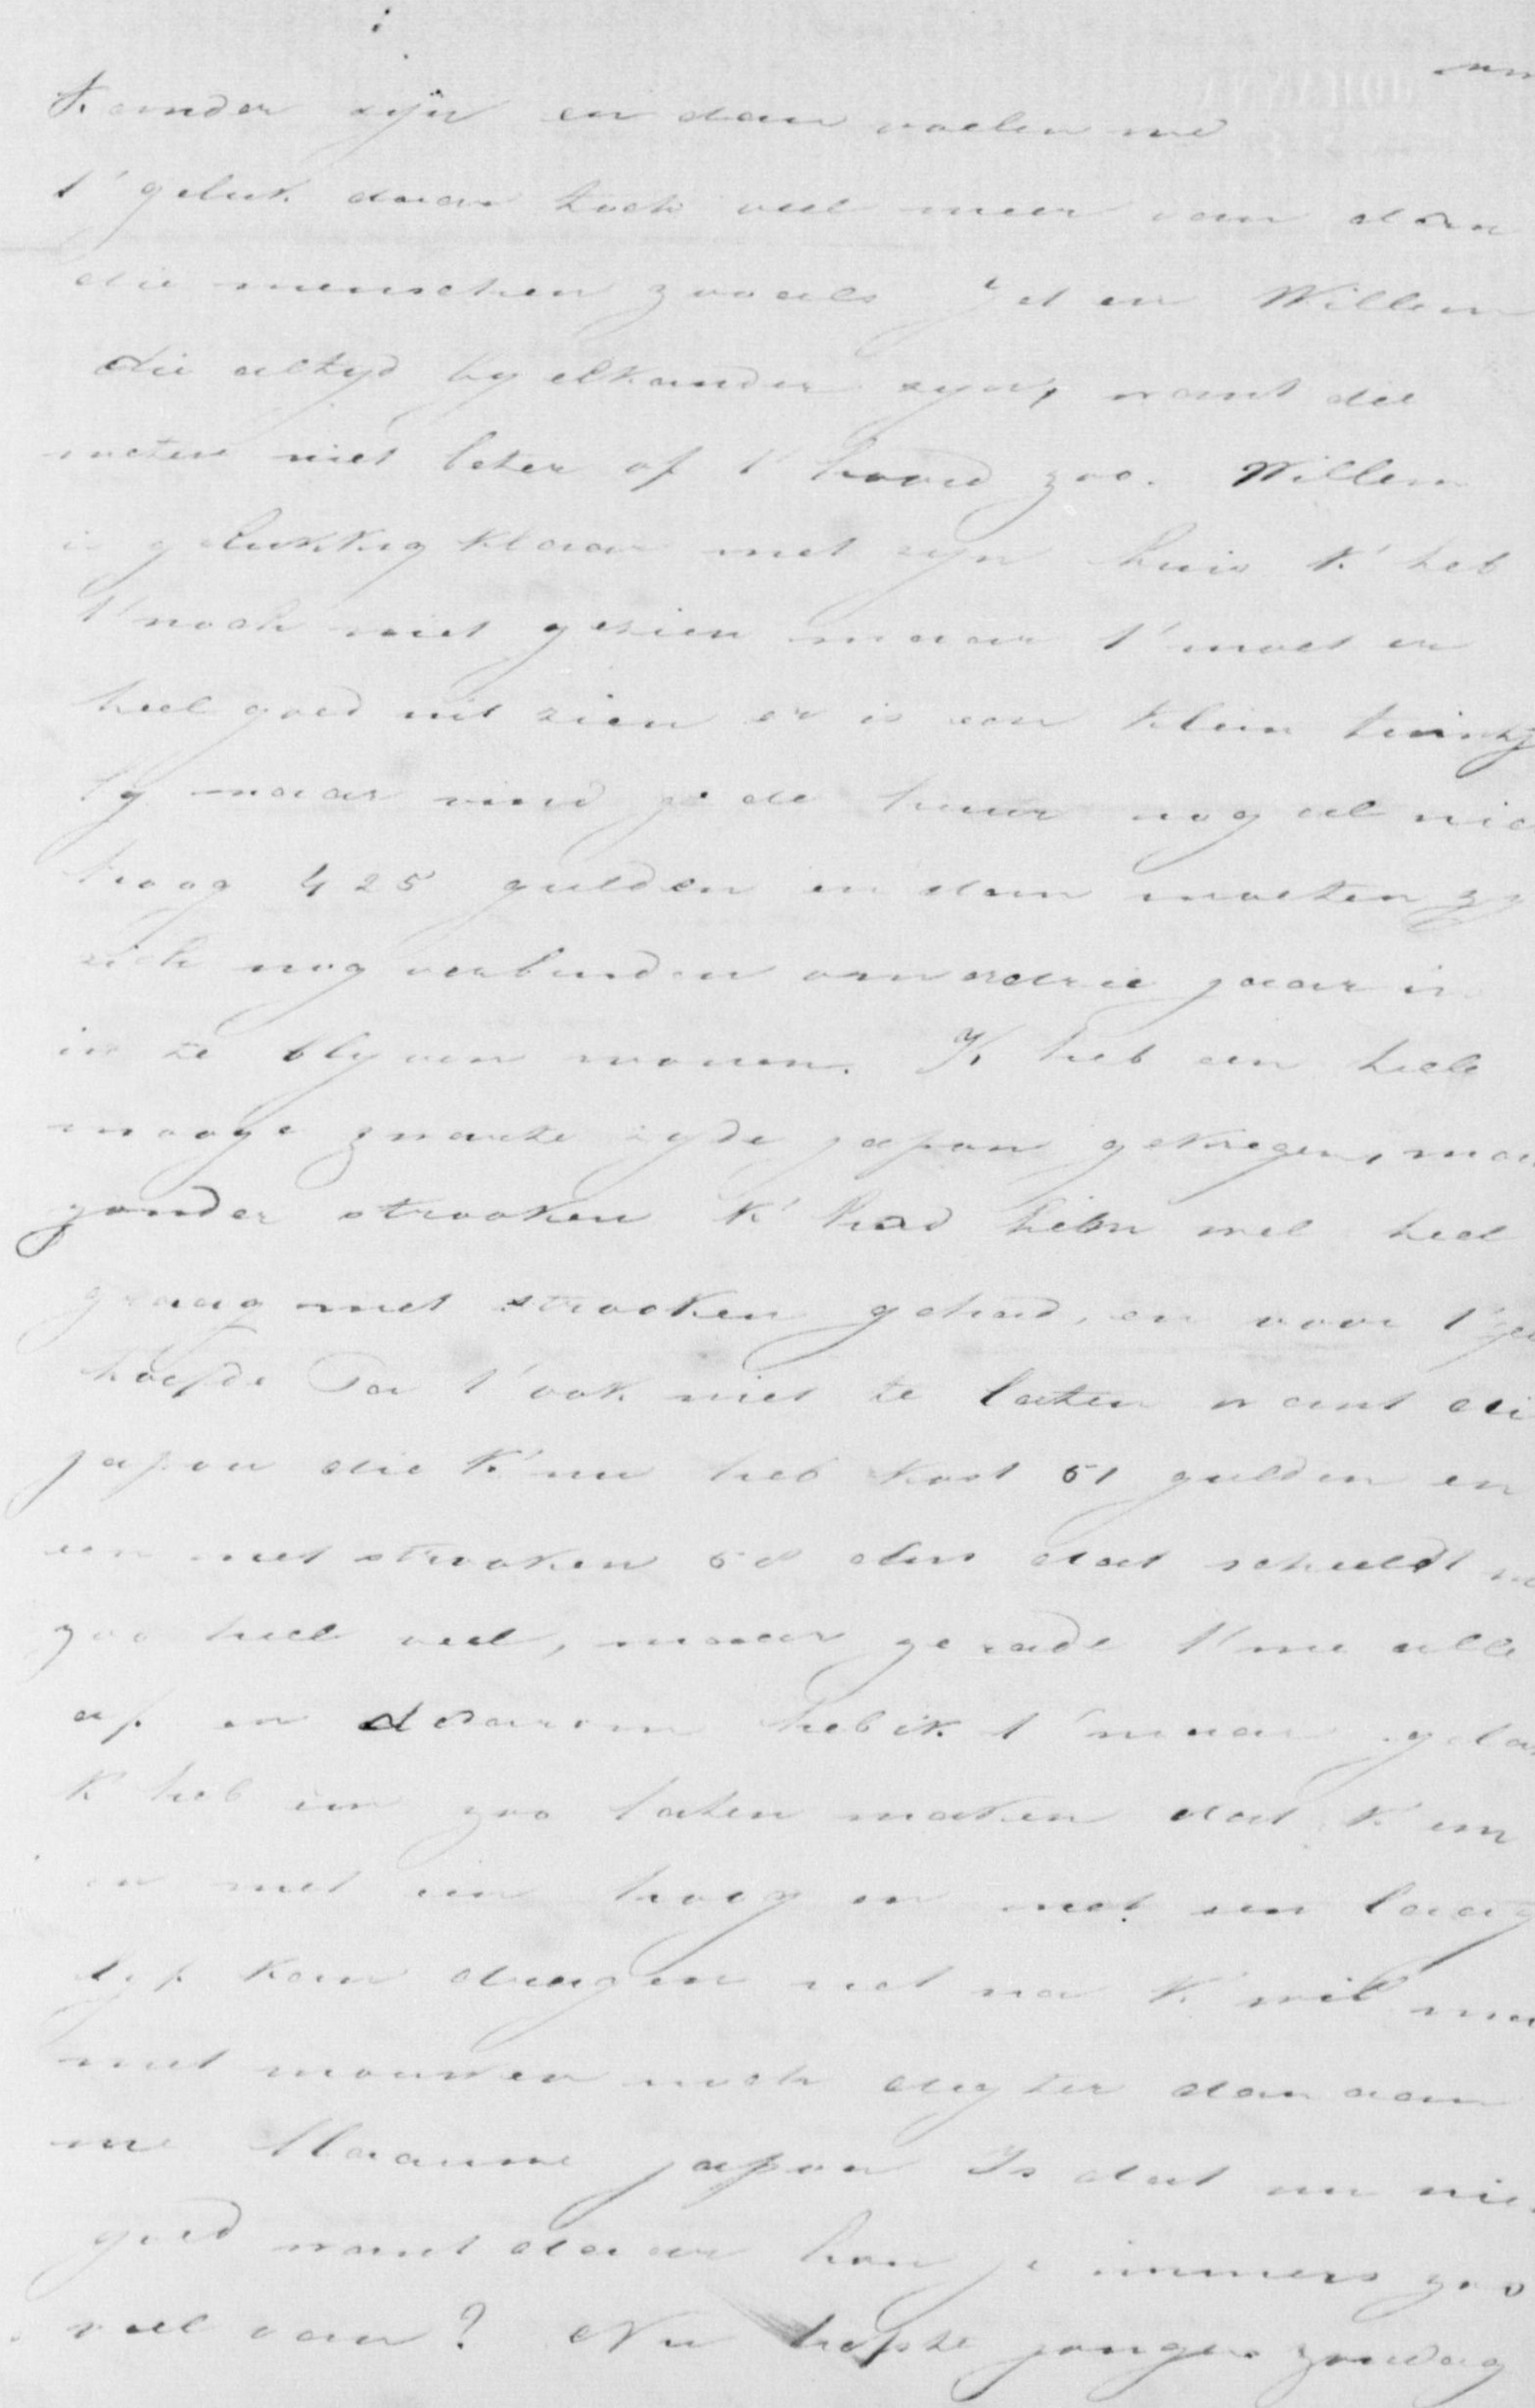 kander zijn en dan voelen we
t' geluk daar toch veel meer van dan
die menschen zooals Jet en Willem
die altyd by elkander zyn, want die
weten niet beter of t' hoord zoo. Willem
is gelukkig klaar met zyn huis k' heb
t' noch niet gezien maar t' moet er
heel goed uit zien er is een klein tuintj
by maar vind je de huur nog al nie
hoog 425 gulden en dan moeten zy
zich nog verbinden om er drie jaar in
in te blyven wonen. K heb een heele
mooye zwarte zyde japon gekregen, maa
zonder strooken k' had hem wel heel
graag met strooken gehad, en voor t' ge
hoefde Pa t' ook niet te laten want die
japon die k' nu heb kost 51 gulden en
een met strooken 58 dus dat scheeldt nie
zoo heel veel, maar ze rade t' me alle
af en daarom heb ik t' maar gela
K heb em zoo laten maken dat k' em
en met een hoog en met een laag
lyf kan dragen net na k' wil maa
met mouwen noch digter dan aan
me blaauwe japon Is dat nu nie
goed want daar hou je immers zoo
veel van? Nu liefste jongen zondag